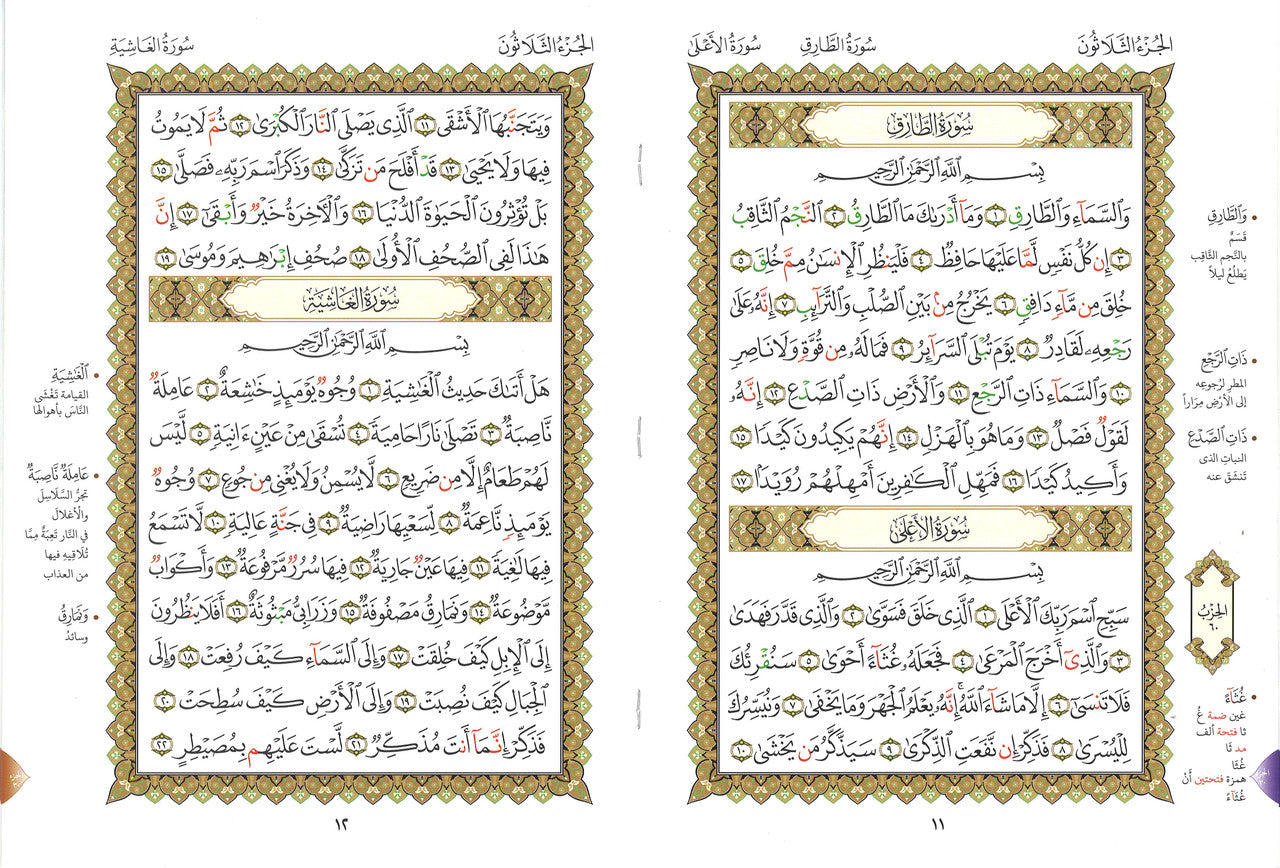 الجُزْءُ الثَّلَاثُونَ
سُورَةُ الطَّارِقِ
سُورَةُ الأَعْلَىٰ
سُورَةُ الطَّارِقِ
بِسْمِ اللَّهِ الرَّحْمَٰنِ الرَّحِيمِ
وَالسَّمَآءِ وَالطَّارِقِ ١ وَمَآ أَدْرَىٰكَ مَا الطَّارِقُ ٢ النَّجْمُ الثَّاقِبُ
٣ إِن كُلُّ نَفْسٍ لَّمَّا عَلَيْهَا حَافِظٌ ٤ فَلْيَنظُرِ الْإِنسَٰنُ مِمَّ خُلِقَ ٥
خُلِقَ مِن مَّآءٍ دَافِقٍ ٦ يَخْرُجُ مِنۢ بَيْنِ الصُّلْبِ وَالتَّرَآئِبِ ٧ إِنَّهُۥ عَلَىٰ
رَجْعِهِۦ لَقَادِرٌ ٨ يَوْمَ تُبْلَى السَّرَآئِرُ ٩ فَمَا لَهُۥ مِن قُوَّةٍ وَلَا نَاصِرٍ
١٠ وَالسَّمَآءِ ذَاتِ الرَّجْعِ ١١ وَالْأَرْضِ ذَاتِ الصَّدْعِ ١٢ إِنَّهُۥ
لَقَوْلٌ فَصْلٌ ١٣ وَمَا هُوَ بِالْهَزْلِ ١٤ إِنَّهُمْ يَكِيدُونَ كَيْدًا ١٥
وَأَكِيدُ كَيْدًا ١٦ فَمَهِّلِ الْكَٰفِرِينَ أَمْهِلْهُمْ رُوَيْدًۢا ١٧
سُورَةُ الأَعْلَىٰ
بِسْمِ اللَّهِ الرَّحْمَٰنِ الرَّحِيمِ
سَبِّحِ اسْمَ رَبِّكَ الْأَعْلَى ١ الَّذِى خَلَقَ فَسَوَّىٰ ٢ وَالَّذِى قَدَّرَ فَهَدَىٰ
٣ وَالَّذِىٓ أَخْرَجَ الْمَرْعَىٰ ٤ فَجَعَلَهُۥ غُثَآءً أَحْوَىٰ ٥ سَنُقْرِئُكَ
فَلَا تَنسَىٰٓ ٦ إِلَّا مَا شَآءَ اللَّهُ ۚ إِنَّهُۥ يَعْلَمُ الْجَهْرَ وَمَا يَخْفَىٰ ٧ وَنُيَسِّرُكَ
لِلْيُسْرَىٰ ٨ فَذَكِّرْ إِن نَّفَعَتِ الذِّكْرَىٰ ٩ سَيَذَّكَّرُ مَن يَخْشَىٰ ١٠
وَالطَّارِقِ
قَسَمٌ
بالنَّجم الثَّاقِب
يَطلُعُ ليلاً
ذَاتِ الرَّجْعِ
المطر لرُجوعِه
إلى الأرْضِ مِرَاراً
ذَاتِ الصَّدْعِ
النبات الذى
تَنشَقّ عنه
الحِزْبُ
٦٠
غُثَآءً
غين ضمة غُ
ثا فتحة ألف
مد ثَا
غُثَا
همزة فتحتين أً
غُثَآءً
الجزء
٣٠
١١
الجُزْءُ الثَّلَاثُونَ
سُورَةُ الغَاشِيَةِ
وَيَتَجَنَّبُهَا الْأَشْقَى ١١ الَّذِى يَصْلَى النَّارَ الْكُبْرَىٰ ١٢ ثُمَّ لَا يَمُوتُ
فِيهَا وَلَا يَحْيَىٰ ١٣ قَدْ أَفْلَحَ مَن تَزَكَّىٰ ١٤ وَذَكَرَ اسْمَ رَبِّهِۦ فَصَلَّىٰ ١٥
بَلْ تُؤْثِرُونَ الْحَيَوٰةَ الدُّنْيَا ١٦ وَالْآخِرَةُ خَيْرٌ وَأَبْقَىٰٓ ١٧ إِنَّ
هَٰذَا لَفِى الصُّحُفِ الْأُولَىٰ ١٨ صُحُفِ إِبْرَٰهِيمَ وَمُوسَىٰ ١٩
سُورَةُ الغَاشِيَةِ
بِسْمِ اللَّهِ الرَّحْمَٰنِ الرَّحِيمِ
هَلْ أَتَىٰكَ حَدِيثُ الْغَٰشِيَةِ ١ وُجُوهٌ يَوْمَئِذٍ خَٰشِعَةٌ ٢ عَامِلَةٌ
نَّاصِبَةٌ ٣ تَصْلَىٰ نَارًا حَامِيَةً ٤ تُسْقَىٰ مِنْ عَيْنٍ ءَانِيَةٍ ٥ لَّيْسَ
لَهُمْ طَعَامٌ إِلَّا مِن ضَرِيعٍ ٦ لَّا يُسْمِنُ وَلَا يُغْنِى مِن جُوعٍ ٧ وُجُوهٌ
يَوْمَئِذٍ نَّاعِمَةٌ ٨ لِّسَعْيِهَا رَاضِيَةٌ ٩ فِى جَنَّةٍ عَالِيَةٍ ١٠ لَّا تَسْمَعُ
فِيهَا لَٰغِيَةً ١١ فِيهَا عَيْنٌ جَارِيَةٌ ١٢ فِيهَا سُرُرٌ مَّرْفُوعَةٌ ١٣ وَأَكْوَابٌ
مَّوْضُوعَةٌ ١٤ وَنَمَارِقُ مَصْفُوفَةٌ ١٥ وَزَرَابِىُّ مَبْثُوثَةٌ ١٦ أَفَلَا يَنظُرُونَ
إِلَى الْإِبِلِ كَيْفَ خُلِقَتْ ١٧ وَإِلَى السَّمَآءِ كَيْفَ رُفِعَتْ ١٨ وَإِلَى
الْجِبَالِ كَيْفَ نُصِبَتْ ١٩ وَإِلَى الْأَرْضِ كَيْفَ سُطِحَتْ ٢٠
فَذَكِّرْ إِنَّمَآ أَنتَ مُذَكِّرٌ ٢١ لَّسْتَ عَلَيْهِم بِمُصَيْطِرٍ ٢٢
الْغَٰشِيَةِ
القيامة تَغْشَى
النَّاسَ بأهوالها
عَامِلَةٌ نَّاصِبَةٌ
تجرُّ السَّلَاسِلَ
والأغلال
في النَّار تَعِبَةٌ مِمَّا
تُلَاقِيهِ فيها
من العذاب
وَنَمَارِقُ
وسائدُ
الجزء
١٢